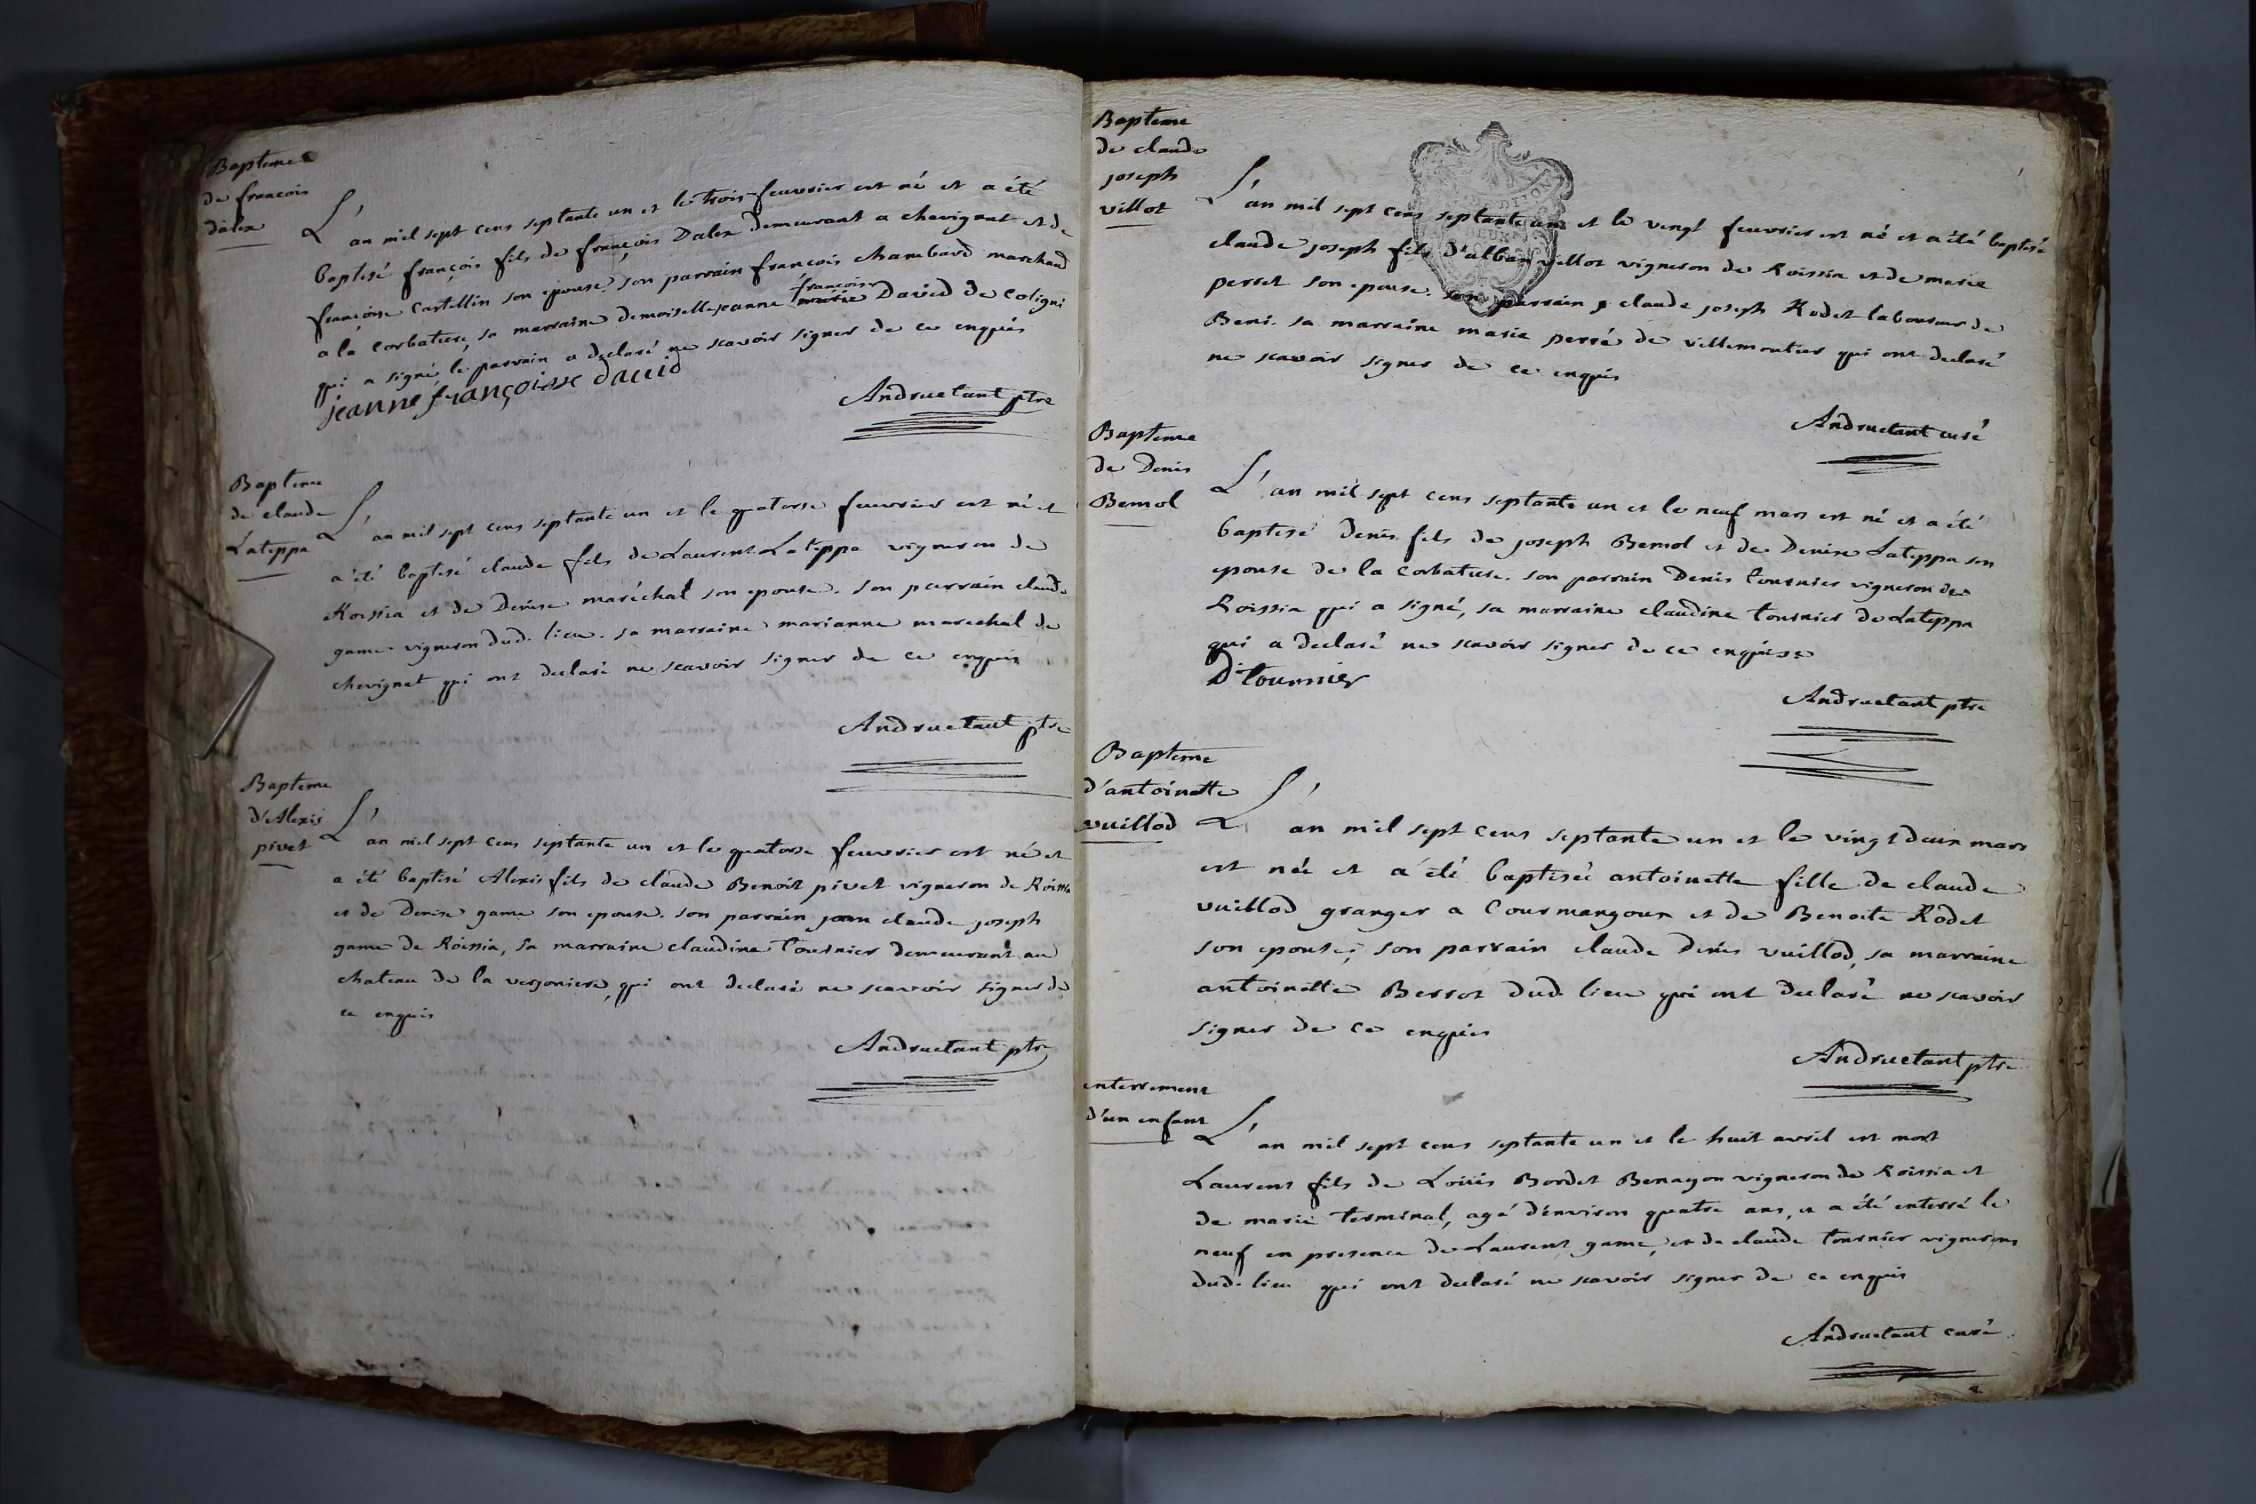 Bapteme
de francois
dalex
L'an mil sept cens septante un et le trois feuvrier est né et a été
baptisé françois fils de françois Dalex demeurant a chevignat et de
françoise Castellin son epouse. son parrain francois chambard marchand
a la Corbature, sa marraine demoiselle jeanne marie françoise David de Coligni
qui a signé le parrain a declaré ne scavoir signer de ce enquis
jeanne françoise david
Andruetant ptre
Bapteme
de claude
Lateppa
L'an mil sept cens septante un et le quatorse feuvrier est né et
a été baptisé claude fils de Laurent Lateppa vigneron de
Roissia et de Denise maréchal son epouse. son parrain claude
game vigneron dud. lieu. sa marraine marianne marechal de
chevignat qui ont declaré ne scavoir signer de ce enquis
Andruetant ptre
Bapteme
d'Alexis
pivet
L'an mil sept cens septante un et le quatorse feuvrier est né et
a été baptisé Alexis fils de claude Benoit pivet vigneron de Roissia
et de Denise game son epouse. son parrain jean claude joseph
game de Roissia, sa marraine claudine tournier demeurant au
chateau de la verjoniere, qui ont declaré ne scavoir signer de
ce enquis
Andruetant ptre
Bapteme
de claude
joseph
villot
L'an mil sept cens septante un et le vingt feuvrier est né et a été baptisé
claude joseph fils d'alban villot vigneron de Roissia et de marie
perret son epouse. son parrain claude joseph Rodet laboureur de
Beni. sa marraine marie perré de villemoutier qui ont declaré
ne scavoir signer de ce enquis
Andruetant curé
Bapteme
de Denis
Bemol
L'an mil sept cens septante un et le neuf mars est né et a été
baptisé denis fils de joseph Bemol et de Denise Lateppa son
epouse de la Corbature. son parrain Denis tournier vigneron de
Roissia qui a signé, sa marraine claudine tournier de Lateppa
qui a declaré ne scavoir signer de ce enquise
D tournier
Andruetant ptre
Bapteme
d'antoinette
vuillod
L'an mil sept cens septante un et le vingt deux mars
est née et a été baptiseé antoinette fille de claude
vuillod granger a Courmangoux et de Benoite Rodet
son epouse; son parrain claude Denis vuillod, sa marraine
antoinette Berrot dud. lieu qui ont declaré ne scavoir
signer de ce enquis
Andruetant ptre
enterrement
d'un enfant
L'an mil sept cens septante un et le huit avril est mort
Laurent fils de Loüis Bordet Benaÿon vigneron de Roissia et
de marie terminal, agé d'environ quatre ans, et a été enterré le
neuf en presence de Laurent game, et de claude tournier vignerons
dud. lieu qui ont declaré ne scavoir signer de ce enquis
Andruetant curé